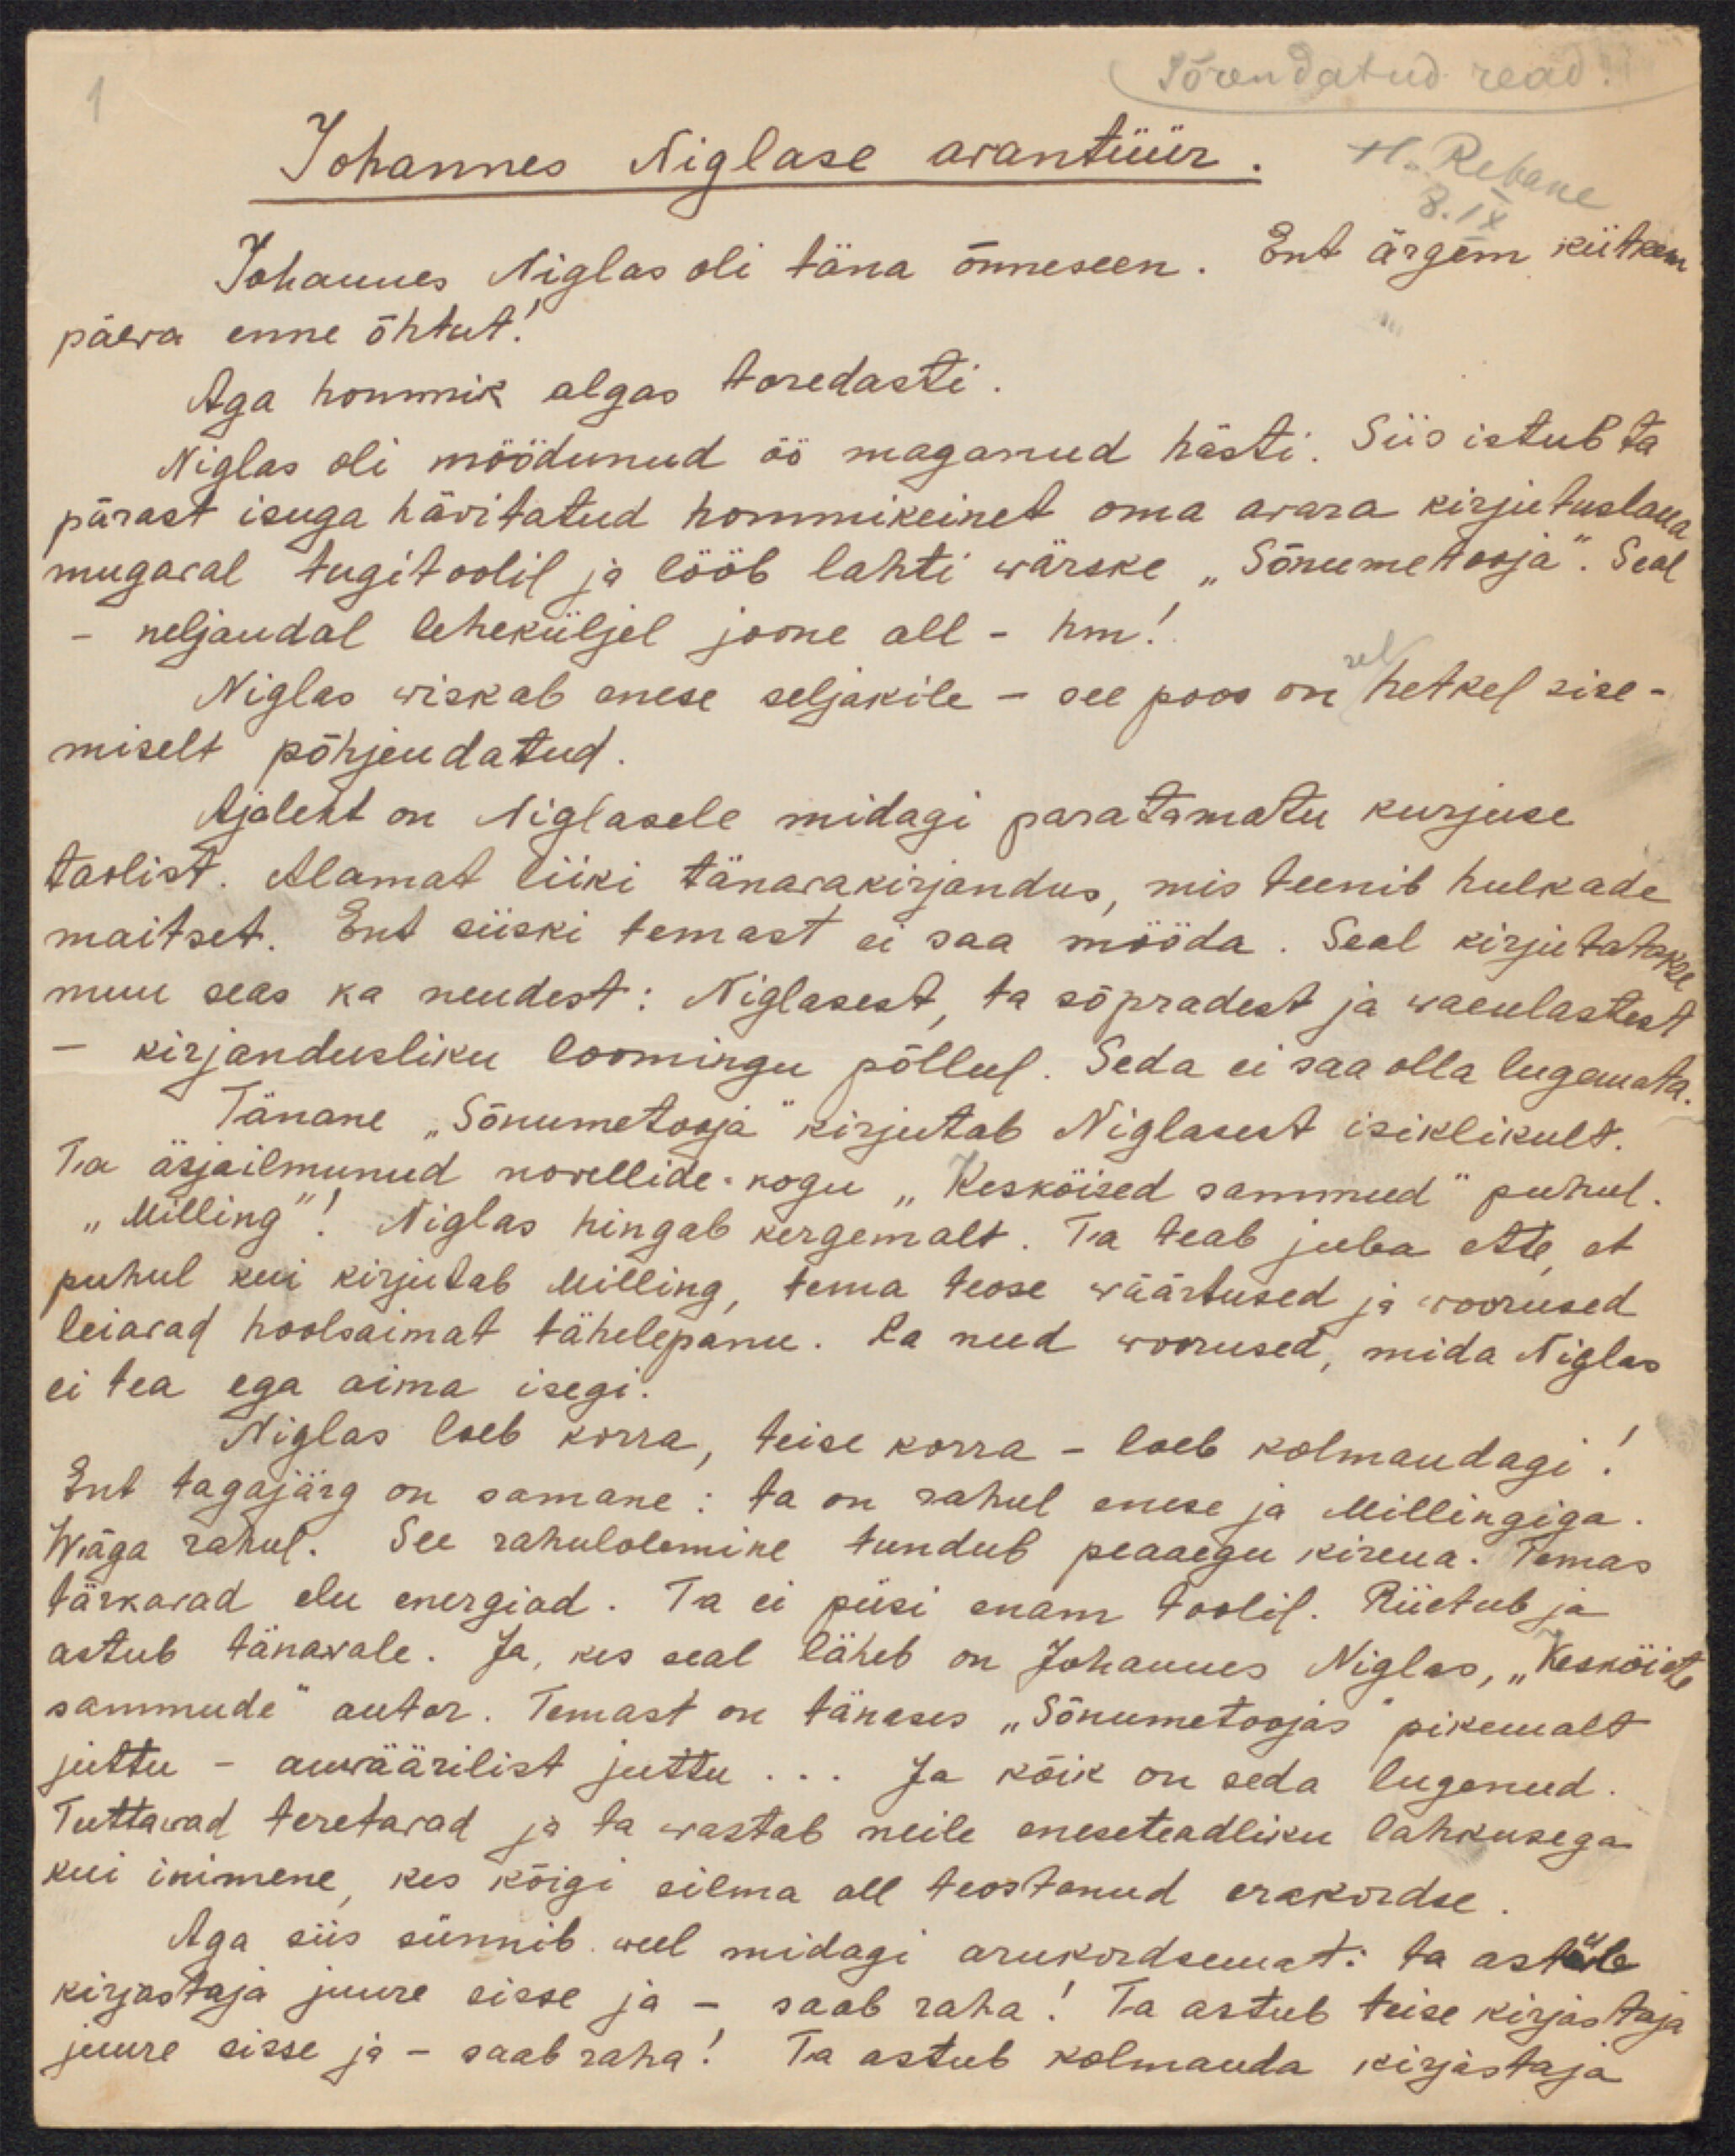 1
Sõrendatud read!
Johannes Niglase avantüür.
H. Rebane
8. IX
Johannes Niglas oli täna õnneseen. Ent ärgem kiitkem
päeva enne õhtut!
Aga hommik algas toredasti.
Niglas oli möödunud öö maganud hästi. Siis istub ta
pärast isuga hävitatud hommikeinet oma avara kirjutuslaua
mugaval tugitoolil ja lööb lahti wärske „Sõnumetooja". Seal
- neljandal leheküljel joone all - hm!
Niglas wiskab enese seljakile - see poos on sel hetkel sise-
miselt põhjendatud.
Ajaleht on Niglasele midagi paratamatu kurjuse
taolist. Alamat liiki tänavakirjandus, mis teenib hulkade
maitset. Ent siiski temast ei saa mööda. Seal kirjutatakse
muu seas ka neudest: Niglasest, ta sõpradest ja waenlastest
- kirjandusliku loomingu põllul. Seda ei saa olla lugemata.
Tänane „Sõnumetooja" kirjutab Niglasest isiklikult.
Ta äsjailmunud novellide-kogu „Kesköised sammud" puhul.
„Milling"! Niglas hingab kergemalt. Ta teab juba ette, et
puhul kui kirjutab Milling, tema teose wäärtused ja woorused
leiavad hoolsaimat tähelepanu. Ka need woorused, mida Niglas
ei tea ega aima isegi.
Niglas loeb korra, teise korra - loeb kolmandagi!
Ent tagajärg on samane: ta on rahul enese ja Millingiga.
Wäga rahul. See rahulolemine tundub peaaegu kirena. Temas
tärkavad elu energiad. Ta ei püsi enam toolil. Riietub ja
astub tänawale. Ja, kes seal läheb on Johannes Niglas, „Kesköiste
sammude" autor. Temast on tänases „Sõnumetoojas" pikemalt
juttu - auwäärilist juttu... Ja kõik on seda lugenud.
Tuttawad teretavad ja ta wastab neile eneseteadliku lahkusega
kui inimene, kes kõigi silma all teostanud erakordse.
Aga siis sünnib weel midagi arukordsemat: ta astub
kirjastaja juure sisse ja - saab raha! Ta astub teise kirjastaja
juure sisse ja - saab raha! Ta astub kolmanda kirjastaja